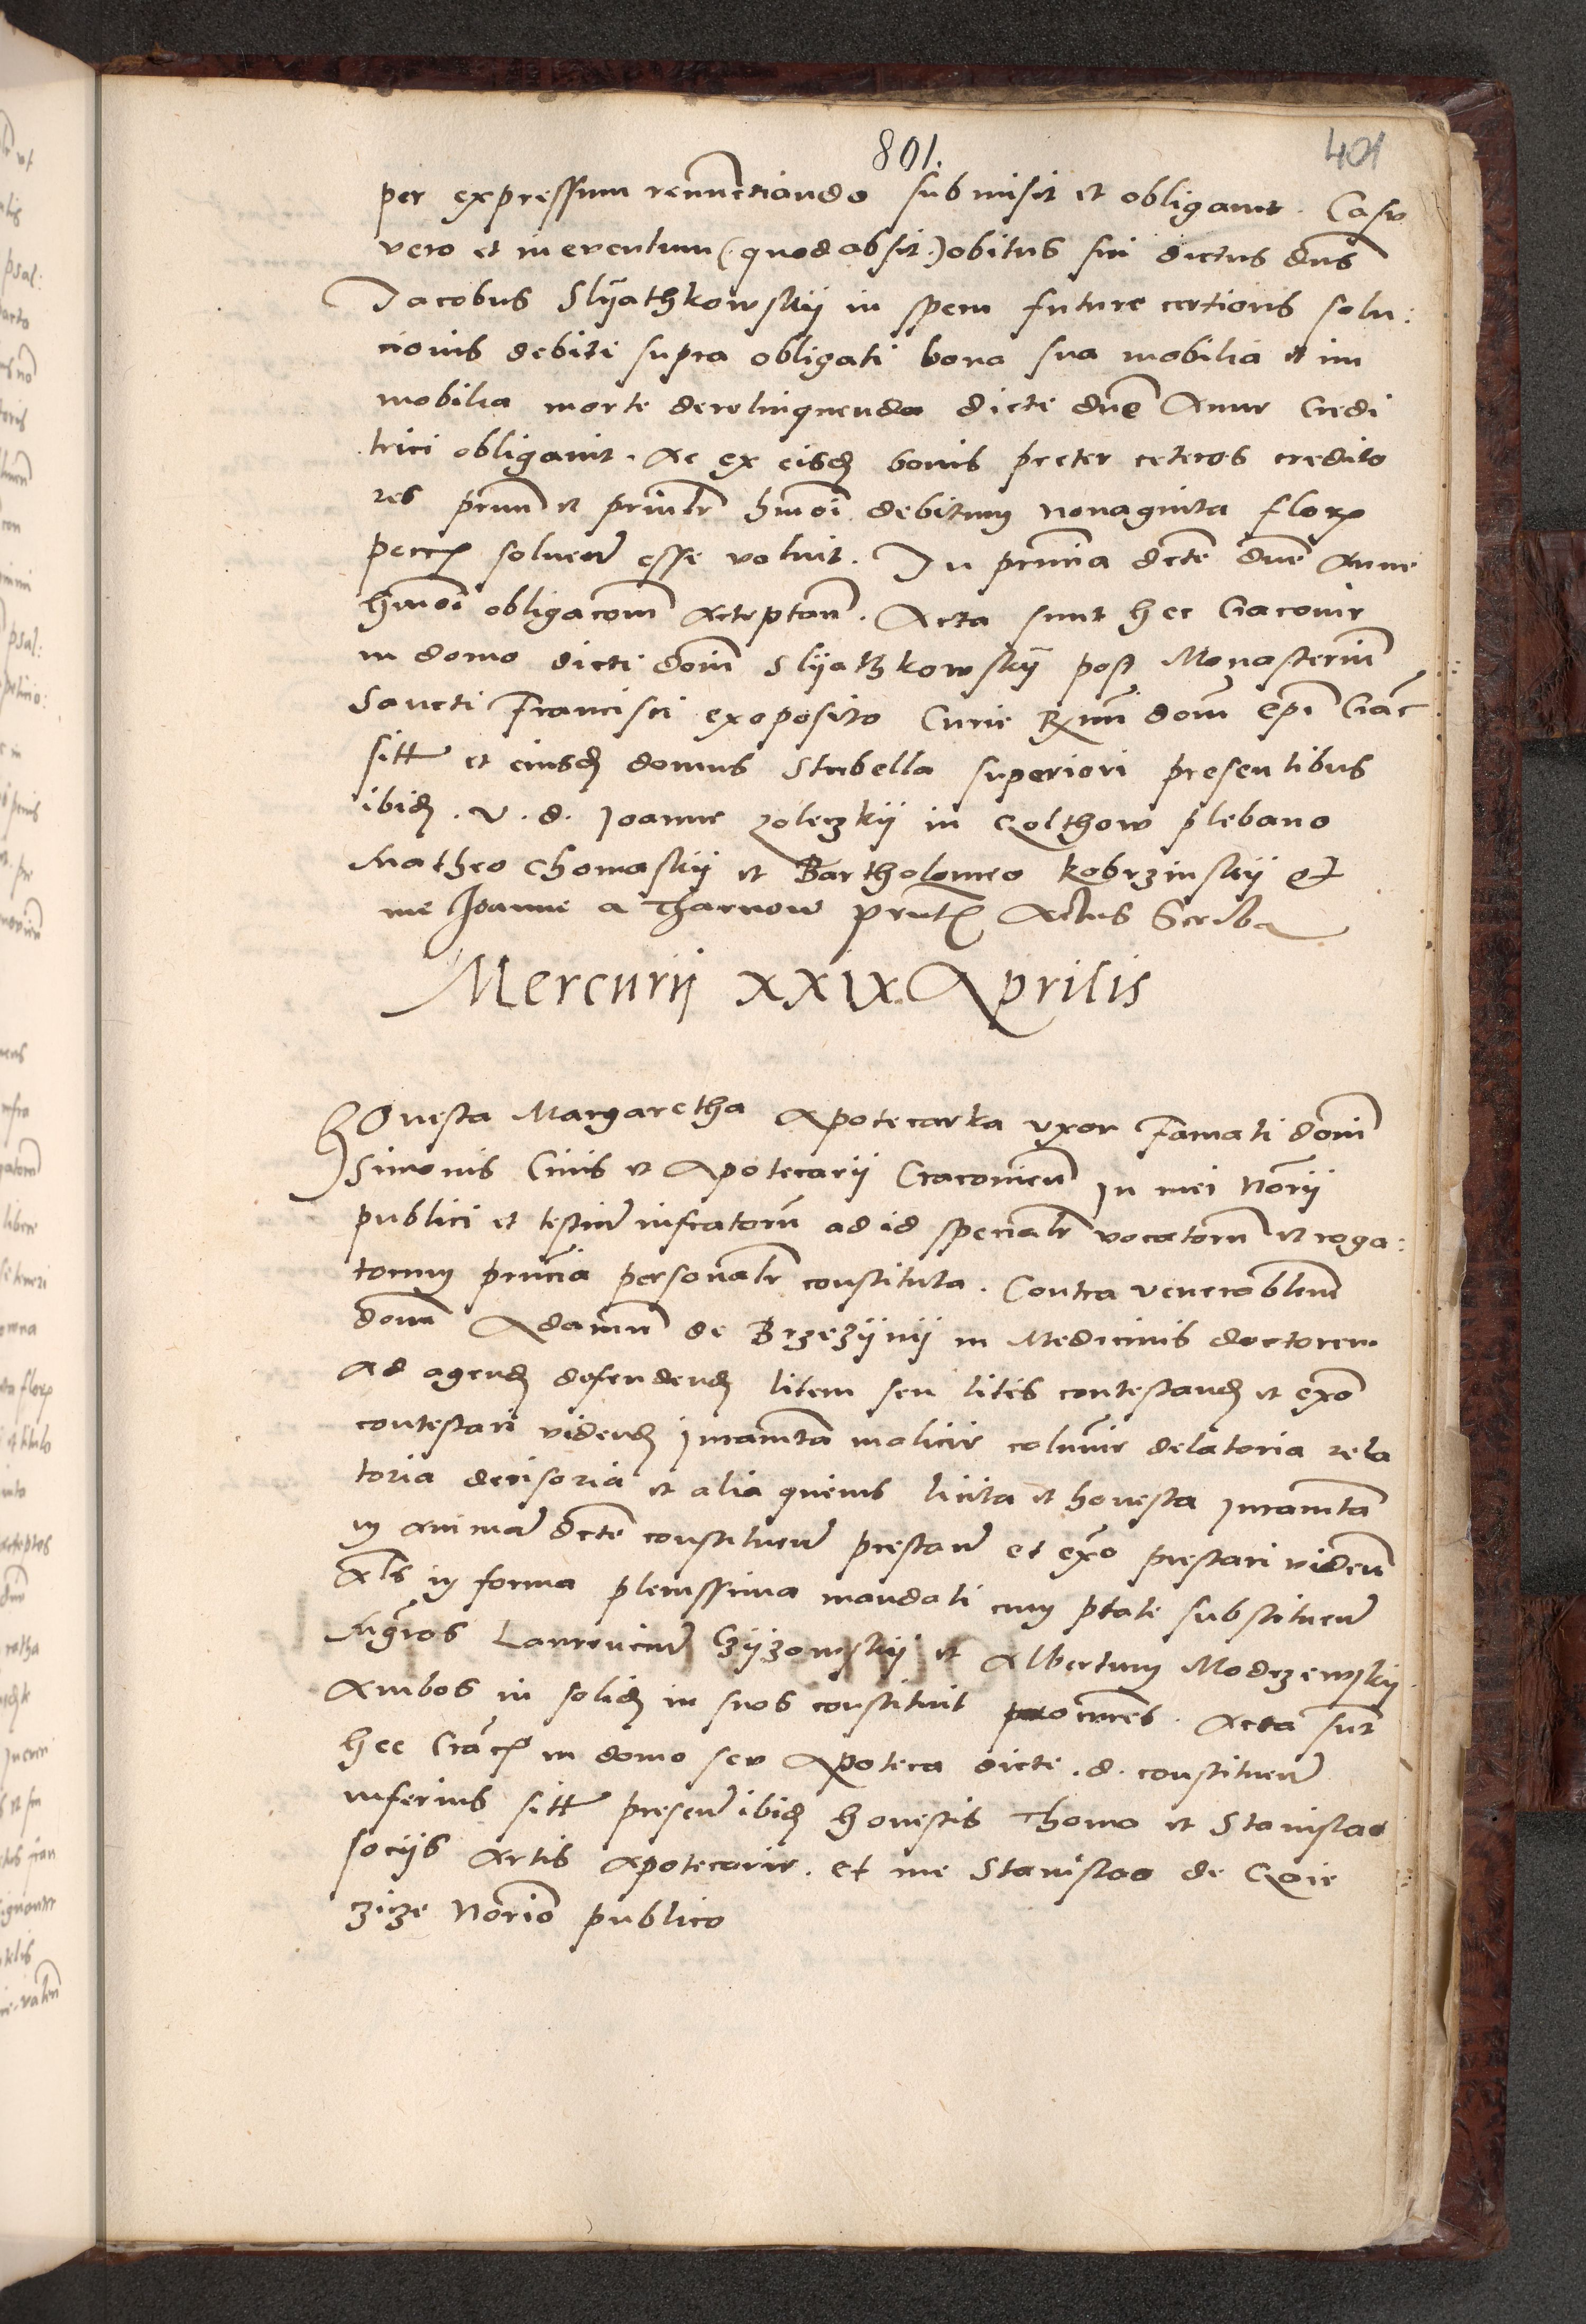 801.
401
per expressum renunctiando submisit et obligavit. Casu
vero et in eventum (quod absit.) obitus sui dictus dns
Jacobus Slyathkowskij in spem future certioris solu:
cionis debiti supra obligati bona sua mobilia et im
mobilia morte derelinquenda dicte dne Anne Credi
trici obligavit. Ac ex eisd bonis preter ceteros credito
res primu et principalr hmoi debitum nonaginta flor
pecc solvend esse voluit. In prntia dcte dne Anne
hmoi obligacom acceptan. Acta sunt hec Cracovie
in domo dicti domi Slyathkowskij post Monasteriu
Sancti Francisci exopposito Curie Rxmi dom epi Crac
sitt et eiusd domus Stubella superiori presentibus
ibid. v. d. Joanne zoleczkij in Qolthow plebano
Matheo Chomaskij et Bartholomeo Kobrzinskij et
me Joanne a Tharnow prnt Actus Scriba
Mercurij xxix Aprilis
HOnesta Margaretha Apotecarka uxor Famati domi
Simonis Civis et Apotecarij Cracovien In mei Norij
publici et testiu infratoru ad id specialr vocatoru et roga:
torum prntia personalr constituta. Contra venerablem
dom Adamu de Brzezijnij in Medicinis doctorem
Ad agend defendend litem seu lites contestand et exo
contestari vidend Juramta malicie calumnie delatoria rela
toria decisoria et alia quevis licita et honesta Juramta
in animam dcte constituen prestan et exo prestari viden
Als in forma plenissima mandati cum ptate substituen
Mgros Laurenciu Czijzowskij et Albertum Modrzewskij
Ambos in solid in suos constituit procures. Acta sunt
hec Crac in domo seu Apoteca dicte. d. constituen
inferius sitt presen ibid honestis Thoma et Stanislao
socijs Artis Apotecarie. et me Stanislao de
Norio publico